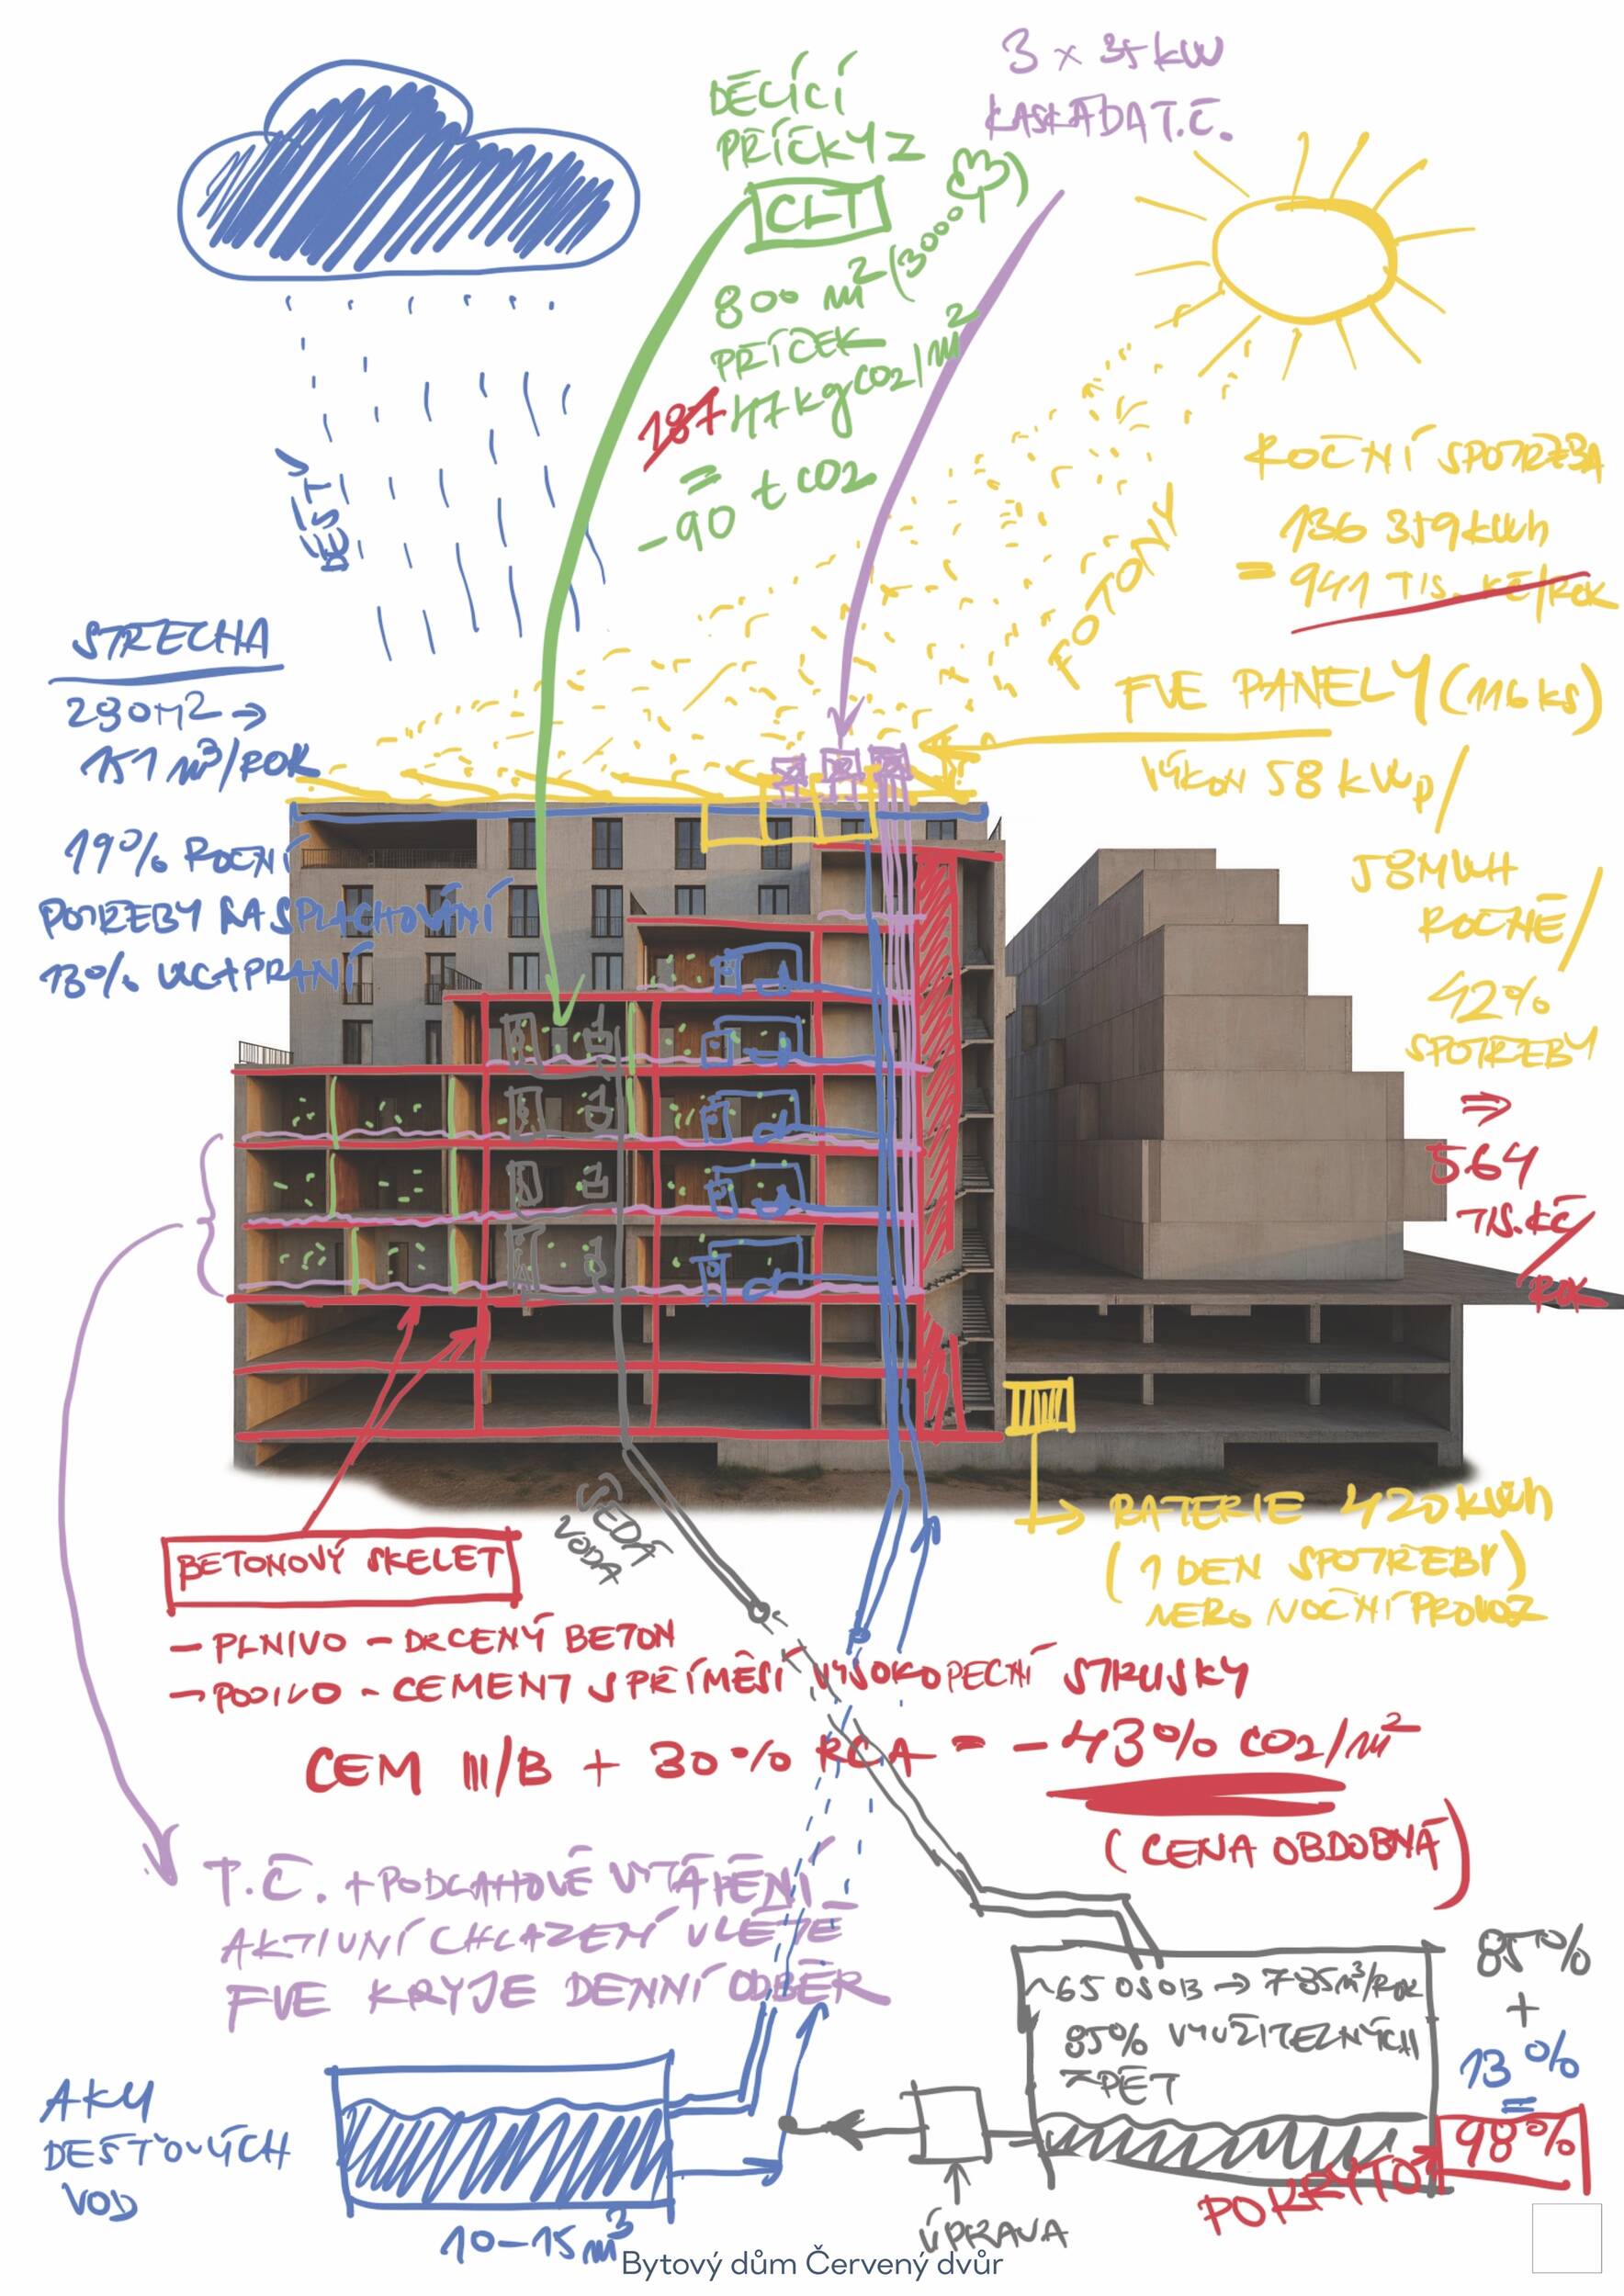 3 x 35 kW
KASKÁDA T.Č.
DĚLÍCÍ
PŘÍČKY Z
CLT
800 m² (3000
PŘÍČEK
187 117 kg CO2/m²
=
-90 t CO2
DÉŠŤ
FOTONY
ROČNÍ SPOTŘEBA
136 359 kWh
= 941 TIS. KČ/ROK
STŘECHA
290 M2 →
151 m³/ROK
19% ROČNÍ
POTŘEBY NA SPLACHOVÁNÍ
13% VČ. PRANÍ
FVE PANELY (116 ks)
VÝKON 58 kWp/
58 MWH
ROČNĚ/
42%
SPOTŘEBY
⇒
564
TIS. KČ/
ROK
ŠEDÁ
VODA
BATERIE 420 kWh
(1 DEN SPOTŘEBY)
NEBO NOČNÍ PROVOZ
BETONOVÝ SKELET
- PLNIVO - DRCENÝ BETON
- POJIVO - CEMENT S PŘÍMĚSÍ VYSOKOPECNÍ STRUSKY
CEM III/B + 30% RCA = -43% CO2/M²
(CENA OBDOBNÁ)
T.Č. + PODLAHOVÉ VYTÁPĚNÍ
AKTIVNÍ CHLAZENÍ V LÉTĚ
FVE KRYJE DENNÍ ODBĚR
~65 OSOB → 785 m³/ROK
85% VYUŽITELNÝCH
ZPĚT
85%
+
13%
=
98%
POKRYTO
AKU
DEŠŤOVÝCH
VOD
10-15 m³
ÚPRAVA
Bytový dům Červený dvůr